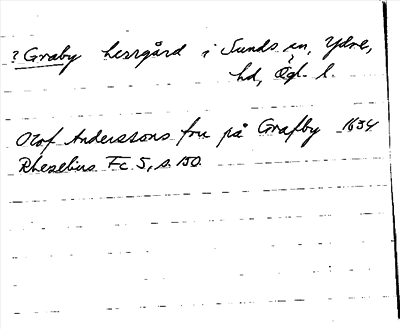 ? Graby herrgård i Sunds sn, Ydre,
hd, Ögl. l.
Olof Anderssons fru på Grafby 1634
Rhezelius Fc 5, s. 150.